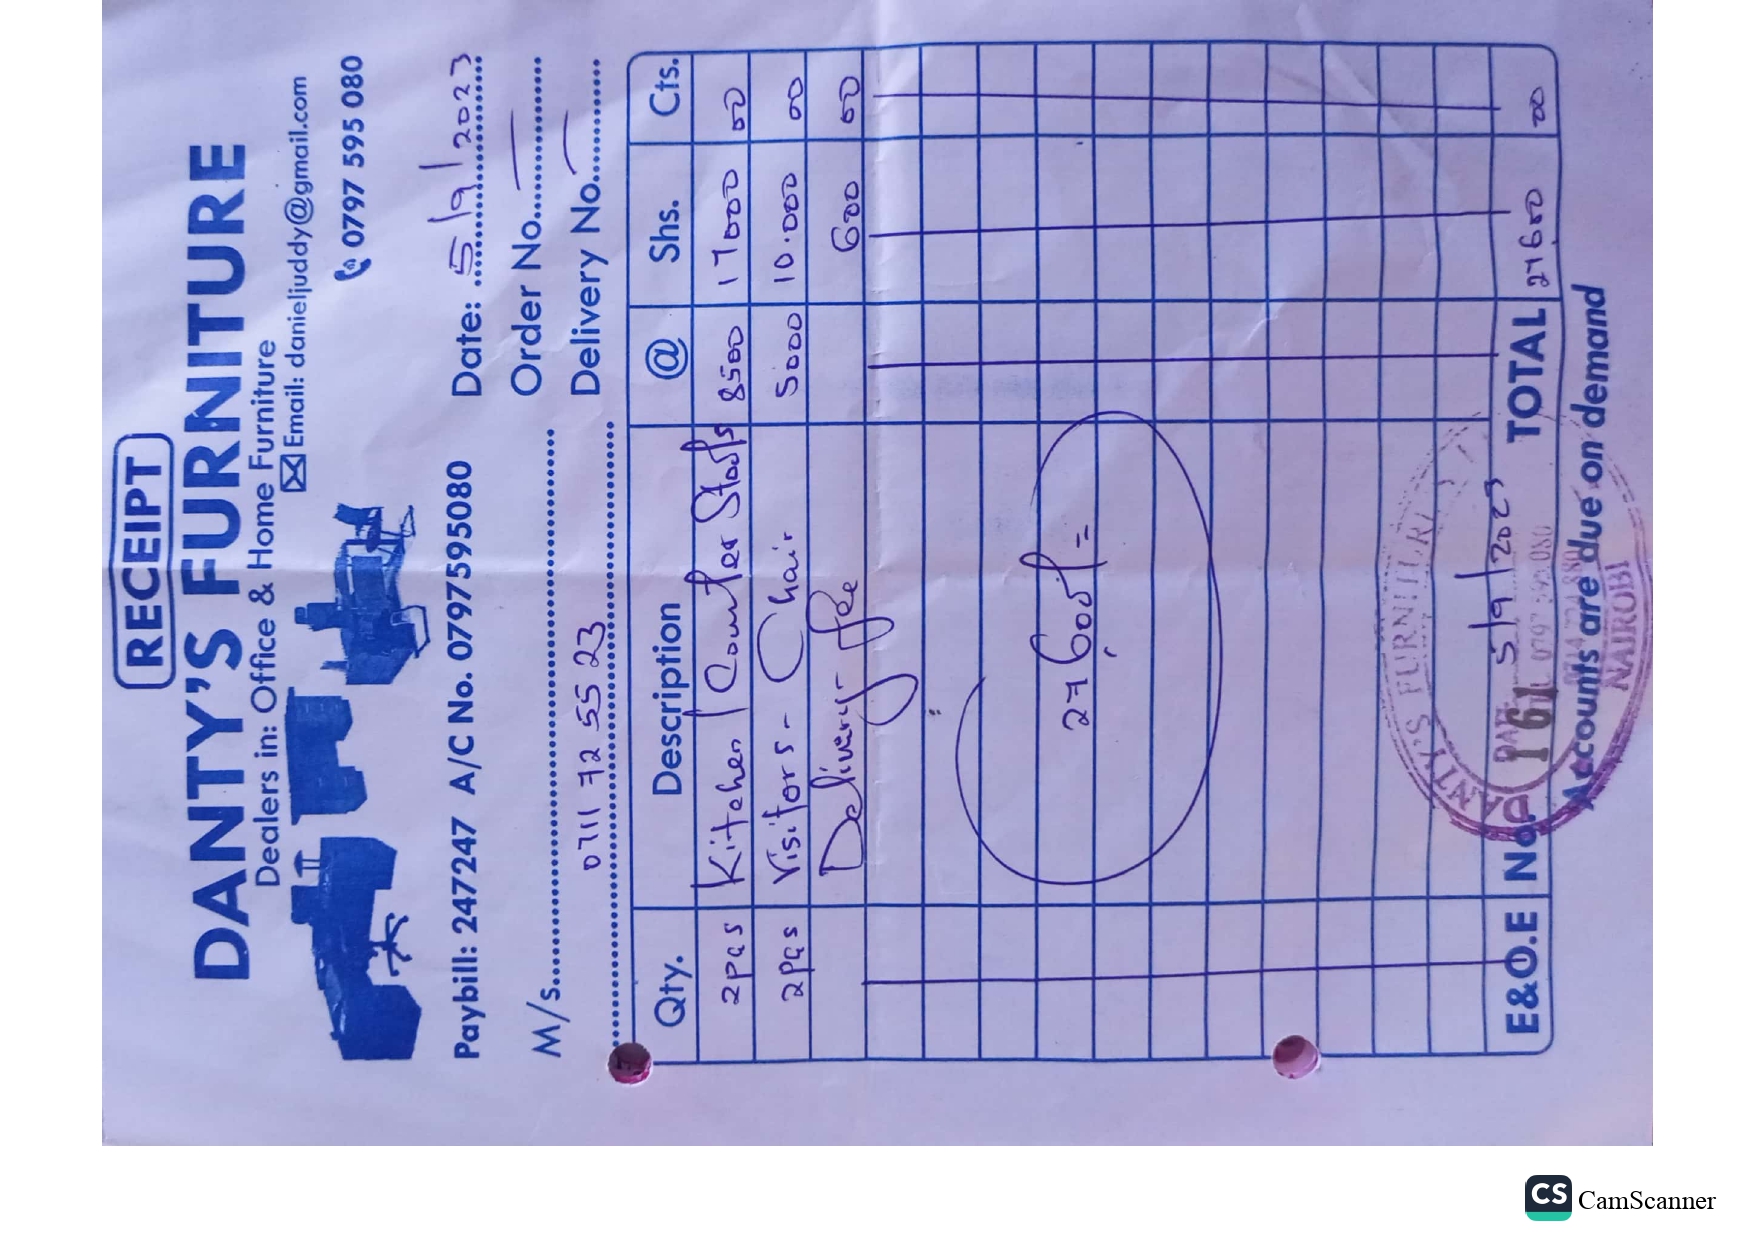 RECEIPT
DANTY'S FURNITURE
Dealers in: Office & Home Furniture
Email: danieljuddy@gmail.com
0797 595 080
Paybill: 247247 A/C No. 0797595080 Date: 5/9/2023
M/s. Order No. —
0711 72 55 23 Delivery No. —
Qty. Description @ Shs. Cts.
2pcs Kitchen Counter Stools 8500 17000 00
2pcs Visitors - Chair 5000 10.000 00
Delivery fee 600 00
27,600/=
5/9/2023
E&O.E No. 161 TOTAL 27600 00
Accounts are due on demand
DANTY'S FURNITURE
DATE
0797 595 080
NAIROBI
CS CamScanner